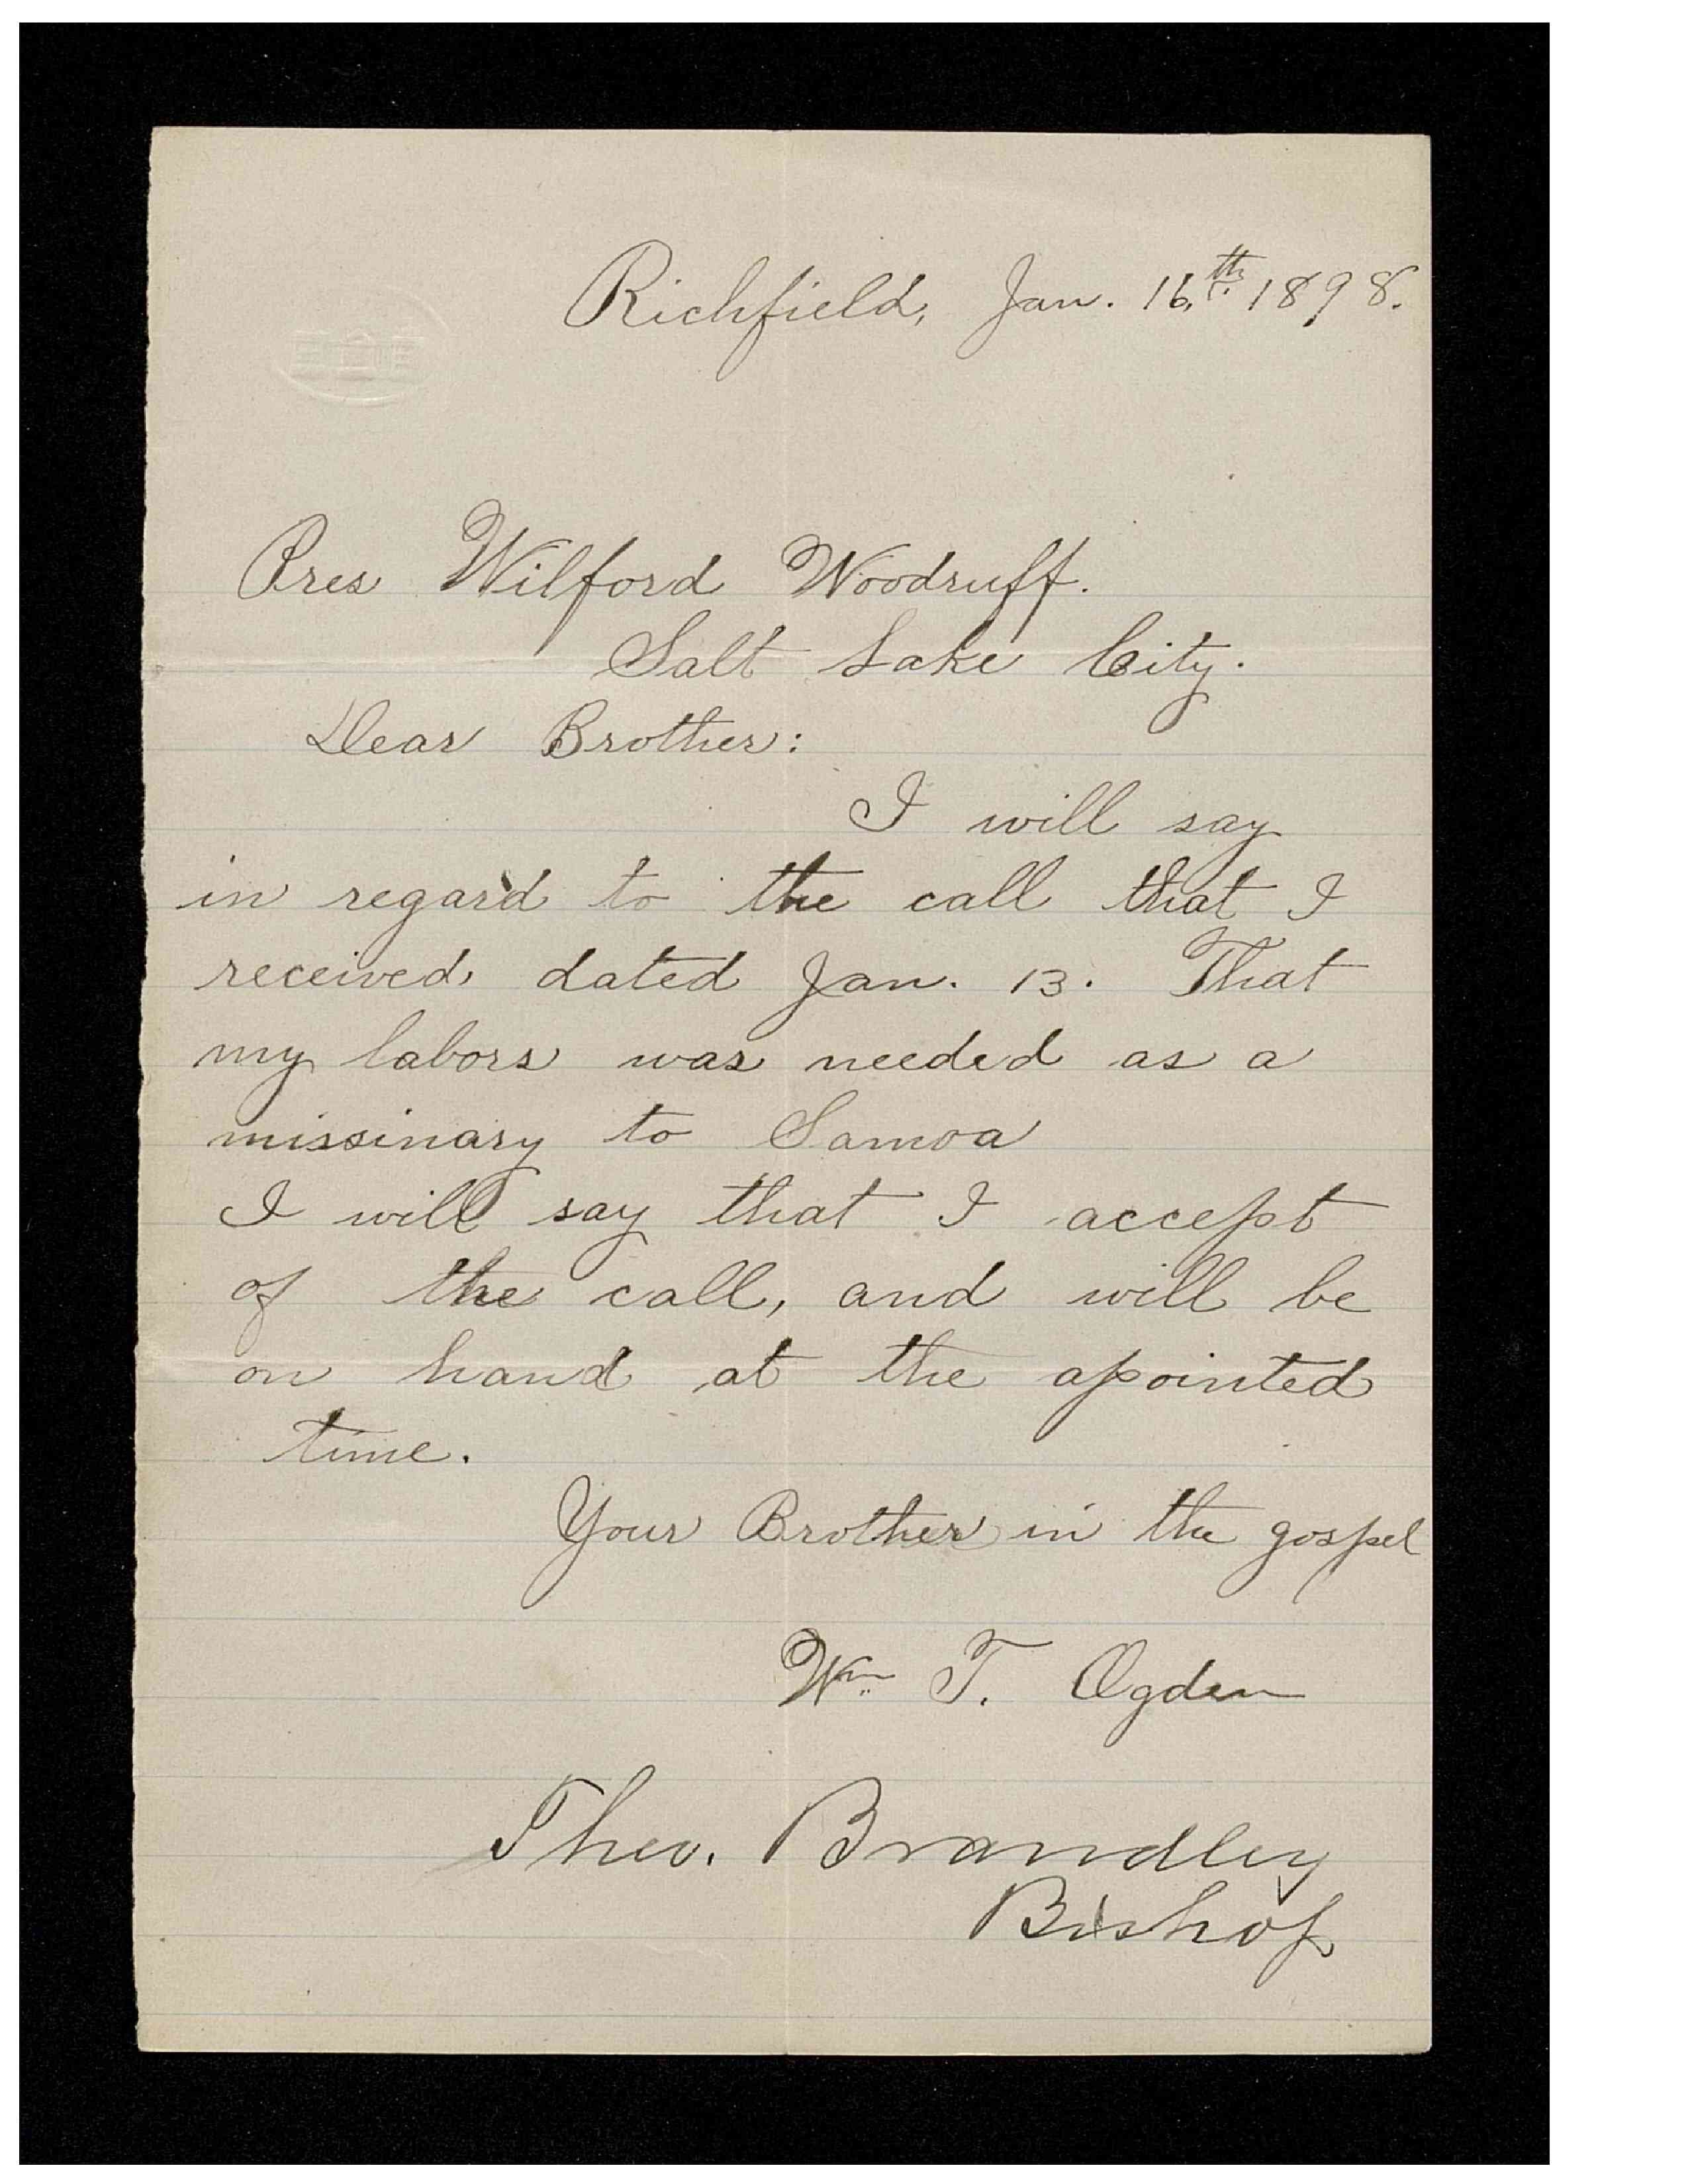 Richfield, Jan. 16th 1898.
Pres Wilford Woodruff.
Salt Lake City.
Dear Brother:
I will say
in regard to the call that I
received dated Jan. 13. That
my labors was needed as a
missinary to Samoa
I will say that I accept
of the call, and will be
on hand at the apointed
time.
Your Brother in the gospel
Wm T. Ogden
Theo. Brandley
Bishop